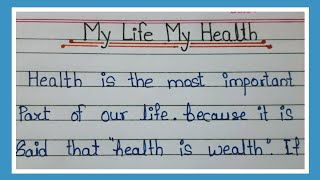 My Life My Health
Health is the most important
Part of our life. because it is
Said that "health is wealth". If